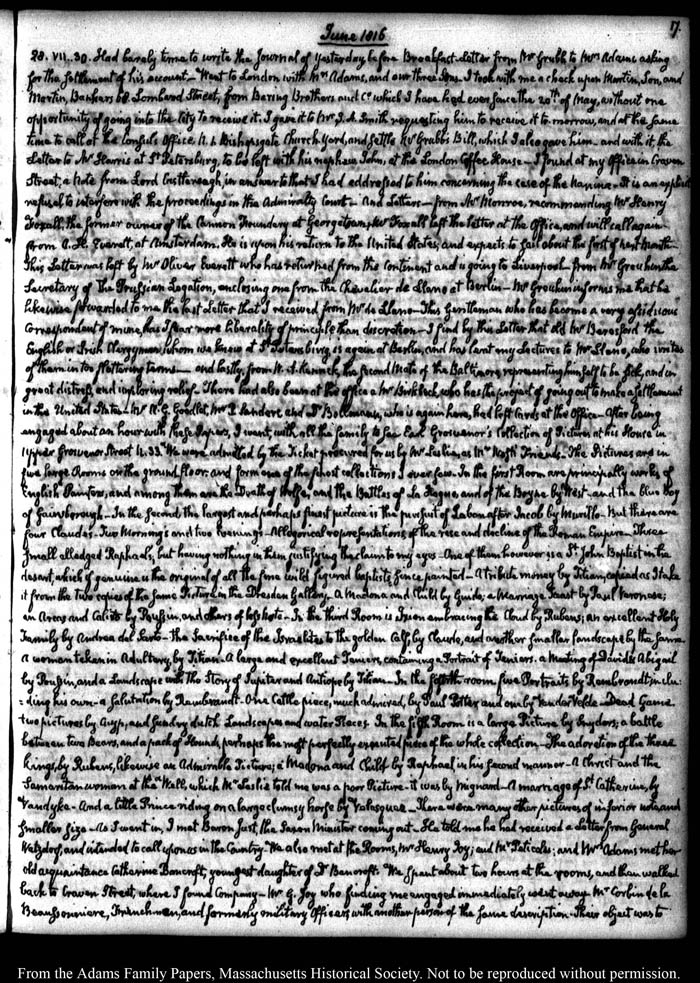 June 1816
7.
28. VII.30. Had barely time to write the Journal of Yesterday before Breakfast. Letter from Mr Grubb to Mrs Adams asking
for the settlement of his account. Went to London with Mrs Adams, and our three Sons. I took with me a check upon Martin, Son, and
Martin, Bankers 68 Lombard Street, from Baring Brothers and Co which I have had ever since the 20th of May, without one
opportunity of going into the City to receive it. I gave it to Mr J. A. Smith requesting him to receive it to-morrow, and at the same
time to call at the Consul's Office, N. 1 Bishopsgate Church Yard, and settle Mr Grubb's Bill, which I also gave him — and with it, the
Letter to Mr Harris at St Petersburg, to be left with his nephew John, at the London Coffee House — I found at my Office in Craven
Street, a Note from Lord Castlereagh, in answer to that I had addressed to him concerning the case of the It is an explicit
refusal to interfere with the proceedings in the Admiralty Court — And Letters — from Mr Monroe, recommending Mr Henry
Foxall, the former owner of the Cannon Foundery at Georgetown; Mr Foxall left the letter at the Office, and will call again —
from A. H. Everett, at Amsterdam. He is upon his return to the United States, and expects to sail about the first of next Month.
This Letter was left by Mr Oliver Everett who has returned from the Continent and is going to Liverpool — from Mr Greuhm the
Secretary of the Prussian Legation, enclosing one from the Chevalier de Llano at Berlin — Mr Greuhm informs me that he
likewise forwarded to me the last Letter that I received from Mr de Llano — This Gentleman who has become a very assiduous
Correspondent of mine, has I fear more liberality of principle than discretion — I find by this Letter that old Mr Beresford the
English or Irish Clergyman, whom we knew at St Petersburg, is again at Berlin, and has lent my Lectures to Mr Llano, who writes
of them in too flattering terms — and lastly, from the second Mate of the Baltimore, representing himself to be sick, and in
great distress, and imploring relief — There had also been at the office a Mr Birkbeck, who has the project of going out to make a settlement
in the United States. Mr R. G. Mr and Dr Bollmann, who is again here, had left Cards at the Office — After being
engaged about an hour with these Papers, I went, with all the family to see Earl Grosvenor's Collection of Pictures at his House in
Upper Grosvenor Street N. 33. We were admitted by the Ticket procured for us by Mr Leslie, as Mr West's Friends. The Pictures are in
five large Rooms on the ground floor; and form one of the finest collections I ever saw. In the first Room are principally works of
English Painters, and among them are the Death of Wolfe, and the Battles of La Hogue, and of the Boyne by West — and the Blue boy
of Gainsborough — In the Second the largest and perhaps finest picture is the pursuit of Laban after Jacob by Murillo — But there are
four Claudes — Two Mornings and two Evenings — Allegorical representations of the rise and decline of the Roman Empire — Three
small alledged Raphaels, but having nothing in them justifying the claim to my eyes — One of them however is a St John Baptist in the
desert, which if genuine is the original of all the fine wild figured baptists since painted — A tribute money by Titian, copied as I take
it from the two copies of the same Picture in the Dresden Gallery — A Madona and Child by Guido; a Marriage Feast by Paul Veronese;
an and Calisto by Poussin, and others of less note — In the third Room is Ixion embracing the Cloud by Rubens; an excellent Holy
Family by Andrea del Sarto — the Sacrifice of the Israelites to the golden Calf, by Claude, and another smaller Landscape by the same —
A woman taken in Adultery, by Titian — A large and excellent Teniers, containing a Portrait of Teniers — a Meeting of David & Abigail
by Poussin, and a Landscape with the Story of Jupiter and Antiope by Titian — In the fourth room five Portraits by Rembrandt, inclu=
=ding his own — a Salutation by Rembrandt — One Cattle piece, much admired, by Paul Potter and one by Vander Velde — Dead Game
two pictures by Cuyp, and sundry dutch Landscapes and water Pieces. In the fifth Room is a large Picture by Snyders; a battle
between two Bears, and a pack of Hounds, perhaps the most perfectly executed piece of the whole collection — The adoration of the three
Kings, by Rubens, likewise an Admirable Picture; a Madona and Child by Raphael in his second manner — A Christ and the
Samaritan woman at the Well, which Mr Leslie told me was a poor Picture — it was by Mignard — A marriage of St Catherine, by
Vandyke — And a little Prince riding on a large clumsy horse by Velasquez — There were many other pictures of inferior note and
smaller size — As I went in, I met Baron Just, the Saxon Minister coming out — He told me he had received a Letter from General
Watzdorf, and intended to call upon us in the Country — We also met at the Rooms, Mr Henry Joy; and Mr and Mrs Adams met her
old acquaintance Catherine Bancroft, youngest daughter of Dr Bancroft. We spent about two hours at the rooms, and then walked
back to Craven Street, where I found Company — Mr G. Joy who finding me engaged immediately went away. Mr Corbin de la
Beaussonniere, Frenchmen, and formerly military Officers, with another person of the same description — Their object was to
From the Adams Family Papers, Massachusetts Historical Society. Not to be reproduced without permission.